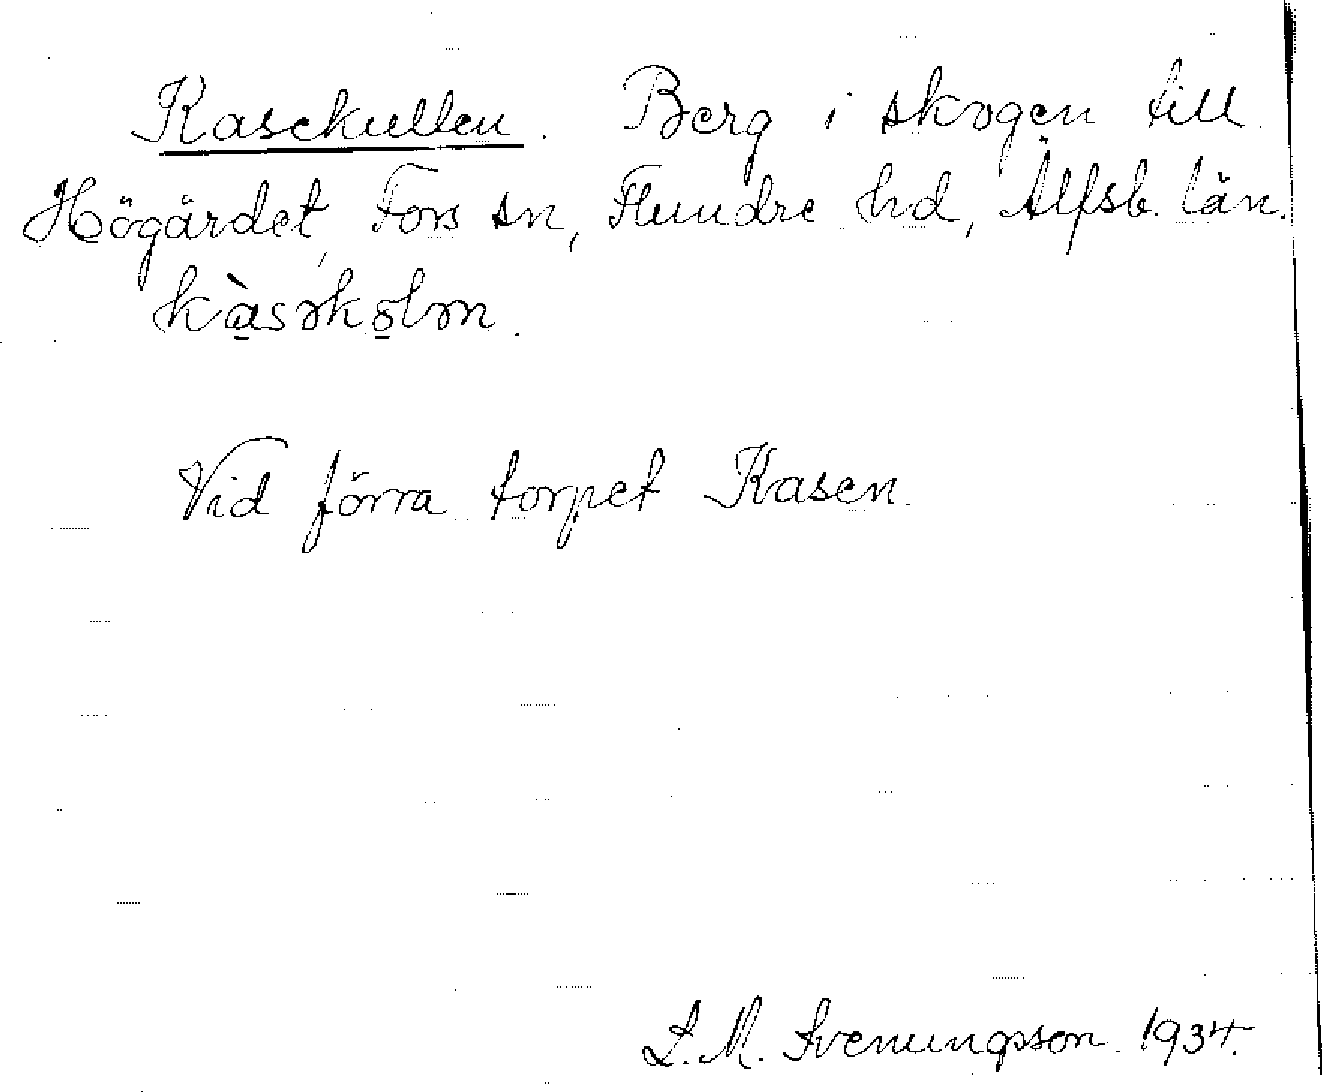 Kasekullen. Berg i skogen till
Högärdet, Fors sn, Flundre hd, Älfsb. län.
kàsəkoln.
Vid förra torpet Kasen.
L. M. Svenungsson. 1934.